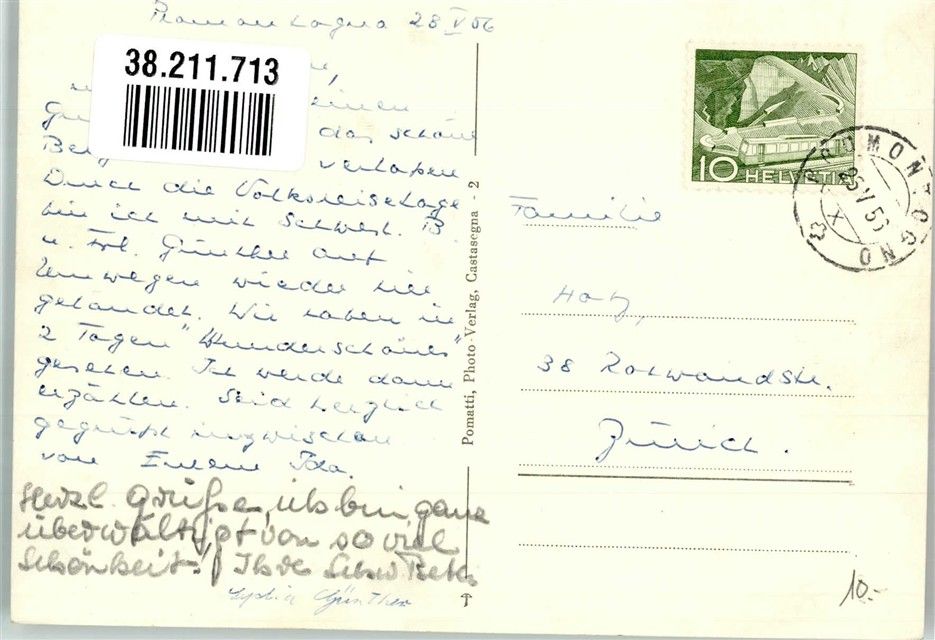 Promontogno 23 V 56
38.211.713
einen
das schöne
verlassen
Durch die Volksreisetage
bin ich mit Schwest. B.
u. Frl. Günther auf
Umwegen wieder hier
gelandet. Wir haben in
2 Tagen "Wunderschönes"
gesehen. Ich werde dann
erzählen. Seid herzlich
gegrüsst inzwischen
von Eurem Ida.
Herzl. Grüße, ich bin ganz
überwältigt von so viel
Schönheit! Ihre Schw Beth
Lydia Günther
Pomatti, Photo-Verlag, Castasegna - 2
10 HELVETIA
PROMONTOGNO
Familie
Hotz,
38 Rotwandstr.
Zürich.
10.-